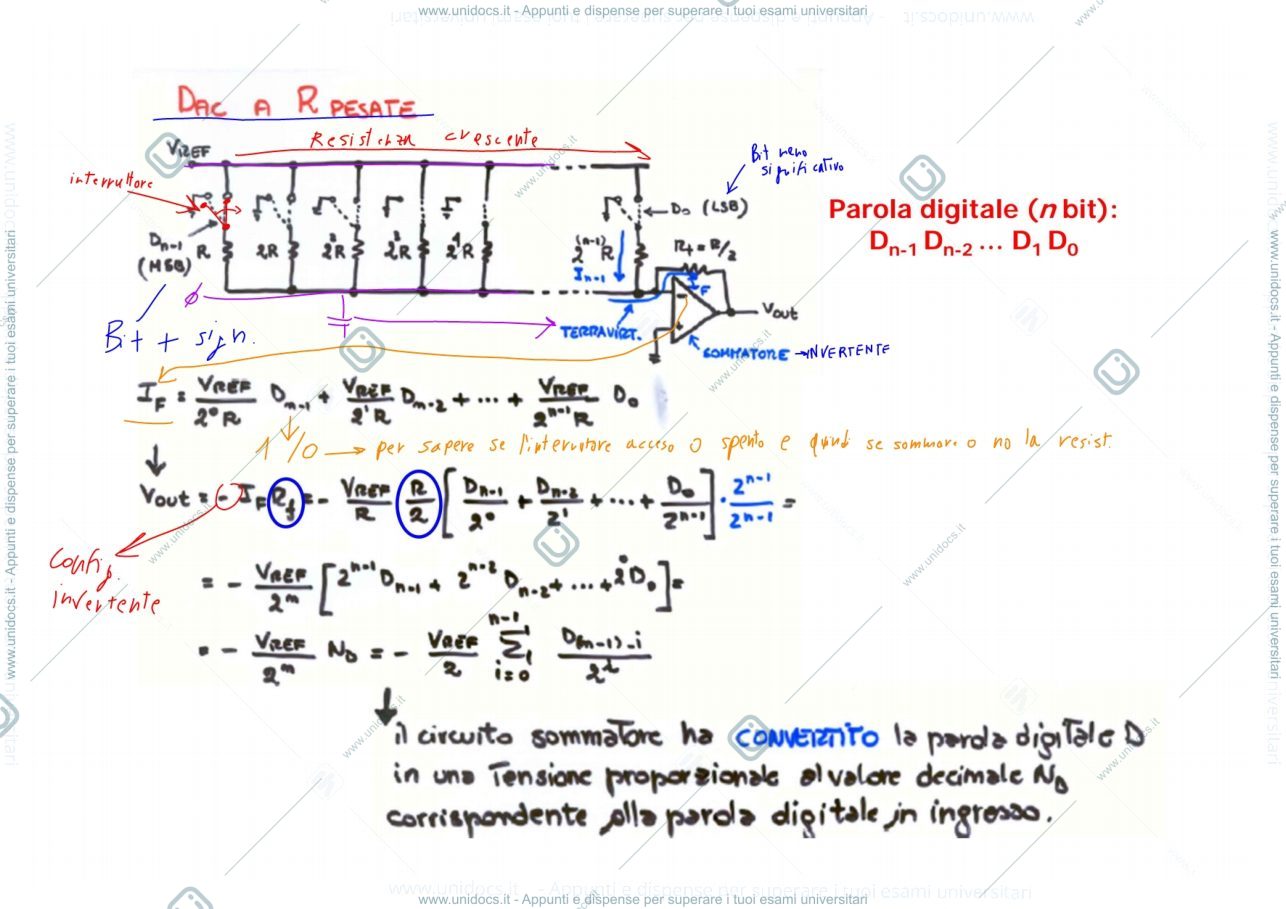 www.unidocs.it - Appunti e dispense per superare i tuoi esami universitari
DAC A R PESATE
Resistenza crescente
VREF
interruttore
Bit meno
significativo
D0 (LSB)
Parola digitale (n bit):
Dn-1 Dn-2 ... D1 D0
Dn-1
(MSB)
R 2R 2²R 2³R 2⁴R 2^(n-1)R
Rf = R/2
In-1
IF
Vout
TERRA VIRT.
SOMMATORE → INVERTENTE
Bit + sign.
IF = VREF/2⁰R Dn-1 + VREF/2¹R Dn-2 + ... + VREF/2^(n-1)R D0
1/0 → per sapere se l'interruttore acceso o spento e quindi se sommare o no la resist.
Vout = - IF Rf = - VREF/R R/2 [Dn-1/2⁰ + Dn-2/2¹ + ... + D0/2^(n-1)] · 2^(n-1)/2^(n-1) =
Config.
invertente
= - VREF/2ⁿ [2^(n-1) Dn-1 + 2^(n-2) Dn-2 + ... + 2⁰ D0] =
= - VREF/2ⁿ ND = - VREF/2 Σ(i=0, n-1) D(n-1)-i/2^i
il circuito sommatore ha CONVERTITO la parola digitale D
in una Tensione proporzionale al valore decimale ND
corrispondente alla parola digitale in ingresso.
www.unidocs.it - Appunti e dispense per superare i tuoi esami universitari